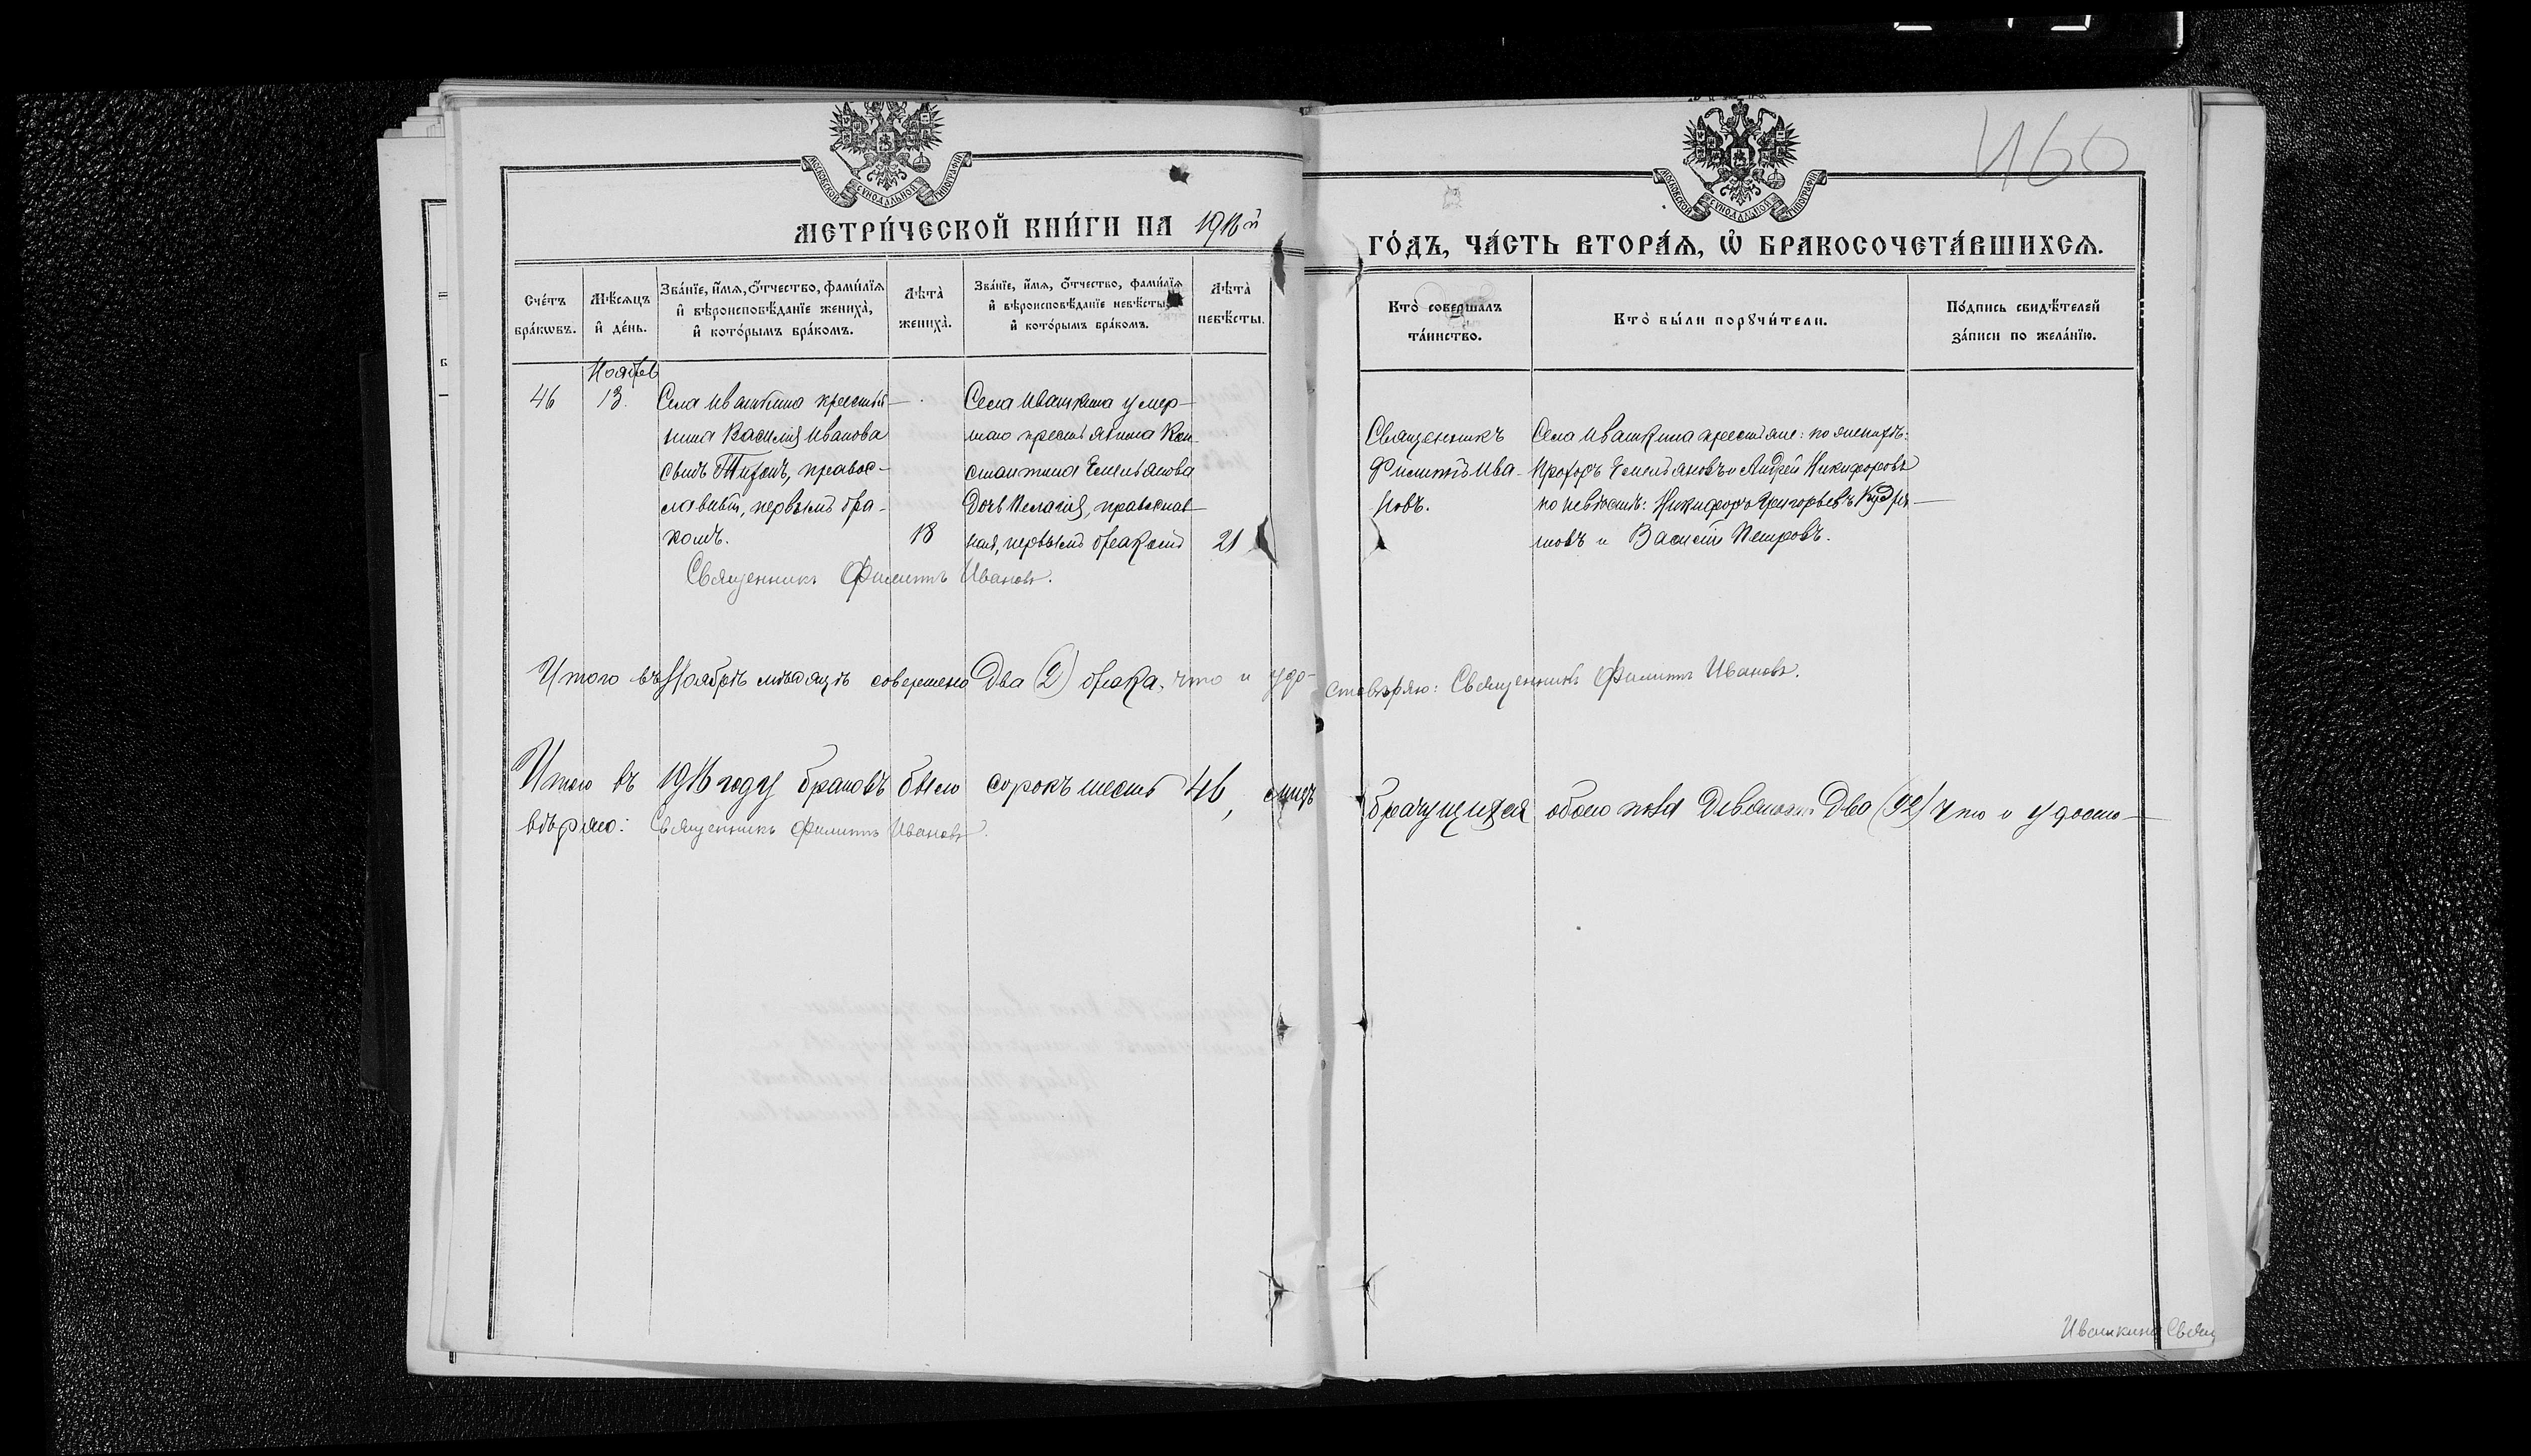 460
МОСКОВСКОЙ СѴНОДАЛЬНОЙ ТИПОГРАФІИ
МОСКОВСКОЙ СѴНОДАЛЬНОЙ ТИПОГРАФІИ
МЕТРИ́ЧЕСКОЙ КНИ́ГИ НА 191 й
ГО́ДЪ, ЧА́СТЬ ВТОРА́Ѧ, Ѡ҆ БРАКОСОЧЕТА́ВШИХСѦ.
Сче́тъ бра́кѡвъ.
Мѣ́сѧцъ и҆ де́нь.
Зва́нїе, и҆́мѧ, ѻ҆́тчество, фамѝлїѧ и҆ вѣроисповѣ́данїе жениха̀, и҆ кото́рымъ бра́комъ.
Лѣта̀ жениха̀.
Зва́нїе, и҆́мѧ, ѻ҆́тчество, фамѝлїѧ и҆ вѣроисповѣ́данїе невѣ́сты, и҆ кото́рымъ бра́комъ.
Лѣта̀ невѣ́сты.
Кто̀ соверша́лъ та́инство.
Кто̀ бы́ли порꙋчи́тели.
По́дпись свидѣ́телей за́писи по жела́нїю.
Ноябрь
46
13.
Села Ивашкина крестья-
нина Василія Иванова
сынъ Тихонъ, правос-
лавный, первымъ бра-
комъ.
18
Села Ивашкина умер-
шаго крестьянина Кон-
стантина Емельянова
дочь Пелагія, православ-
ная, первымъ бракомъ
21
Священникъ Филиппъ Ивановъ.
Священникъ
Филиппъ Ива-
новъ.
Села Ивашкина крестьяне: по женихѣ:
Прохоръ Емельяновъ и Андрей Никифоровъ
по невѣстѣ: Никифоръ Григорьевъ Кудря-
шовъ и Василій Петровъ.
Итого въ Ноябрѣ мѣсяцѣ совершено два (2) брака, что и удо-
стовѣряю: Священникъ Филиппъ Ивановъ.
Итого въ году браковъ было сорокъ шесть 46, лицъ
брачущихся обоего пола девяносто два (92) что и удосто-
вѣряю: Священникъ Филиппъ Ивановъ.
Ивашкина Свящ